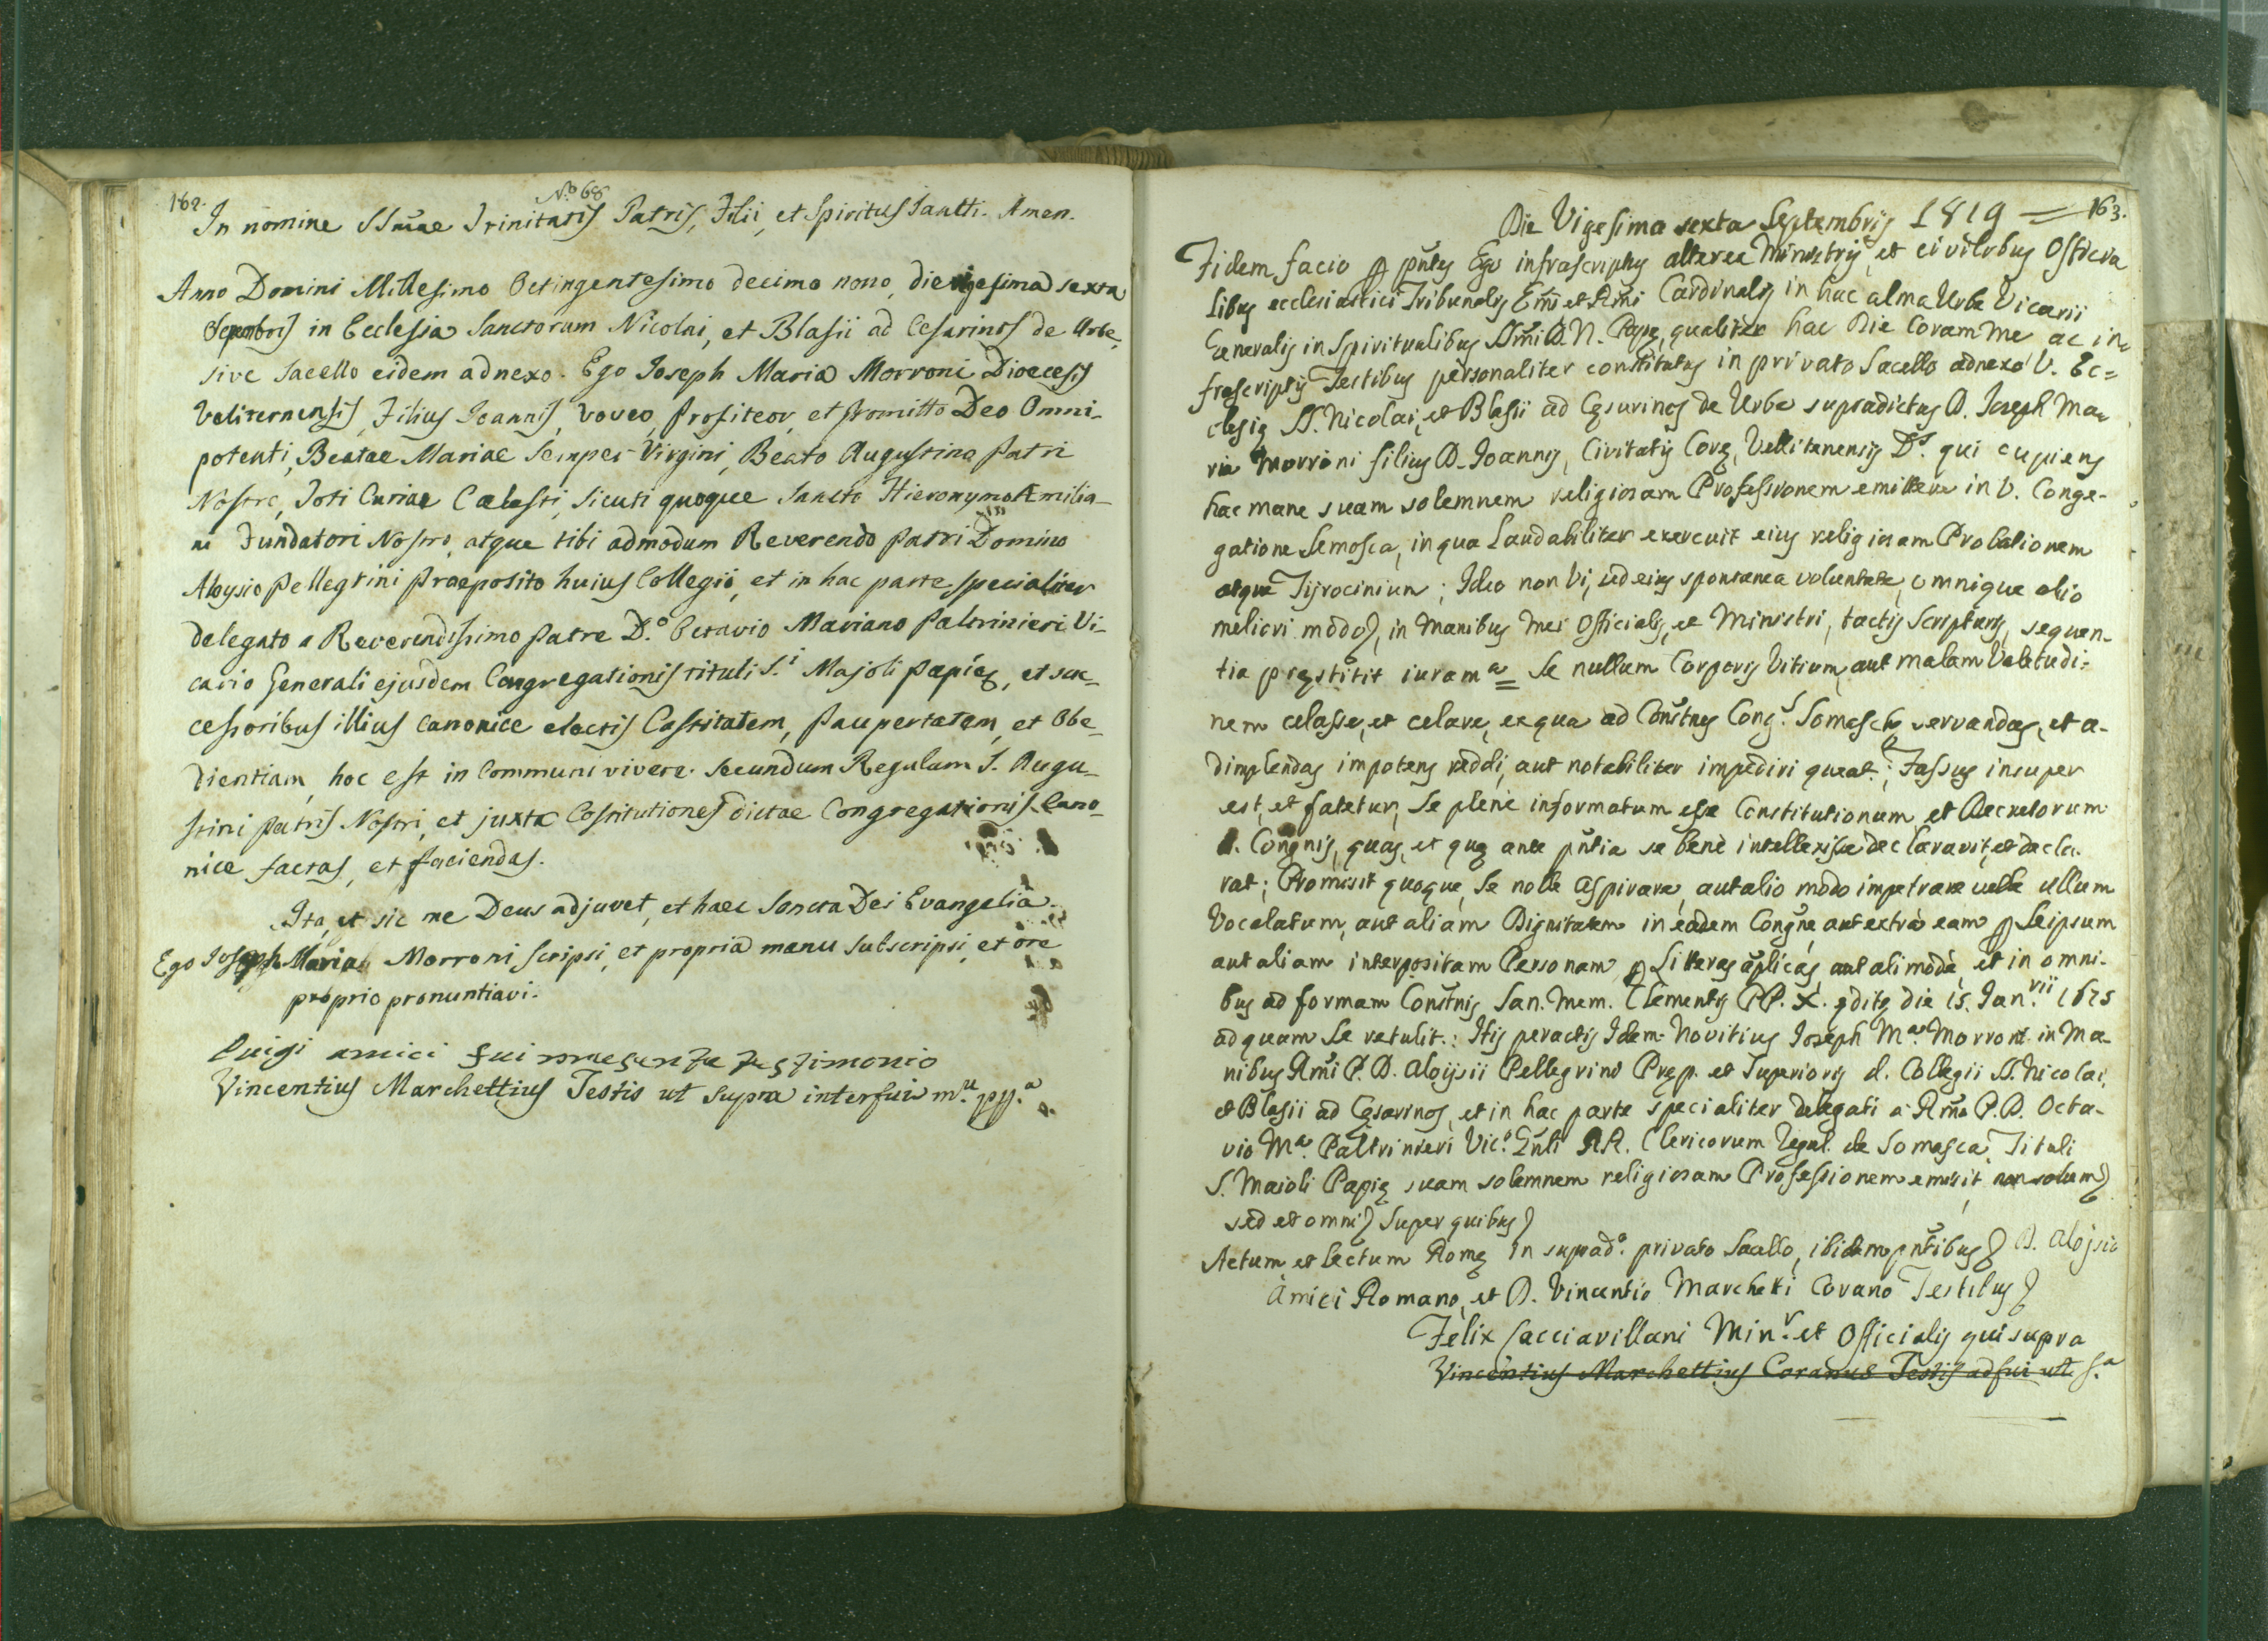 162.
N.º 68
In nomine SSmae Trinitatis Patris, Filii, et Spiritus Sancti. Amen.
Anno Domini Millesimo Octingentesimo decimo nono, die vigesima sexta
Septembris in Ecclesia Sanctorum Nicolai, et Blasii ad Cesarinos de Urbe,
sive Sacello eidem adnexo. Ego Joseph Maria Morroni Dioecesis
Veliternensis, Filius Joannis, voveo, profiteor, et promitto Deo Omni-
potenti, Beatae Mariae Semper Virgini, Beato Augustino Patri
Nostro, Toti Curiae Cælesti, sicuti quoque Sancto Hieronymo Æmilia-
ni Fundatori Nostro, atque tibi admodum Reverendo Patri Domino
Aloysio Pellegrini Praeposito huius Collegii, et in hac parte specialiter
delegato a Reverendissimo Patre D.º Octavio Mariano Paltrinieri Vi-
cario Generali ejusdem Congregationis tituli S.i Majoli Papię, et suc-
cessoribus illius canonice electis Castitatem, Paupertatem, et Obe-
dientiam, hoc est in Communi vivere secundum Regulam S. Augu-
stini Patris Nostri, et juxta Costitutiones dictae Congregationis Cano-
nice factas, et faciendas.
Ita, et sic me Deus adjuvet, et haec Sancta Dei Evangelia.
Ego Joseph Maria Morroni scripsi, et propria manu subscripsi, et ore
proprio pronuntiavi.
Luigi amici fui presente testimonio
Vincentius Marchettius Testis ut supra interfui m.u pp.a
163.
Die Vigesima sexta Septembris 1819 =
Fidem facio p pñtes Ego infrascriptus alterex Ministris, et civilibus Officia
libus ecclesiastici Tribunalis Emi et Rmi Cardinalis in hac alma Urbe Vicarii
Generalis in Spiritualibus SSmi D. N. Papę, qualiter hac Die Coram me ac in
frascriptis Testibus personaliter constitutus in privato Sacello adnexo V. Ec=
clesię SS. Nicolai, et Blasii ad Cęsarinos de Urbe supradictus D. Joseph Ma=
ria Morroni filius D. Joannis, Civitatis Corę, Vellitenensis D.s qui cupiens
hac mane suam solemnem religiosam Professionem emittere in V. Conge-
gatione Semosca, in qua Laudabiliter exercuit eius religiosam Probationem
atque Tijrocinium; Ideo non Vi, sed eius spontanea voluntate, omnique alio
meliori modo, in manibus mei Officialis, et Ministri, tactis Scripturis, sequen-
tia pręstitit iuram.a = Se nullum Corporis Vitium, aut malam Valetudi=
nem celasse, et celare, ex qua ad Constnes Cong.s Somaschę servandas, et a-
dimplendas impotens reddi, aut notabiliter impediri queat.; Fassus insuper
est, et fatetur, Se plenè informatum esse Constitutionum, et Decretorum
d. Congnis, quas, et quę ante pñtia se benè intellexisse declaravit, et decla
rat; Promisit quoque, Se nolle aspirare, aut alio modo impetrare velle ullum
Vocalatum, aut aliam Dignitatem in eadem Congne, aut extrà eam p Seipsum
aut aliam interpositam Personam p Litteras aplicas, aut alimodè, et in omni-
bus ad formam Constnis San. Mem. Clementis PP. X. ędite die 15. Jan.rii 1675
ad quam Se retulit.: His peractis Idem Novitius Joseph M.a Morroni in Ma-
nibus Rmi P. D. Aloijsii Pellegrini Pręp. et Superioris d. Collegii SS. Nicolai,
et Blasii ad Cęsarinos, et in hac parte specialiter delegati a Rmo P. D. Octa-
vio M.a Paltrinieri Vic.º Gnli RR. Clericorum Regul. de Somasca, Tituli
S. Maioli Papię suam solemnem religiosam Professionem emisit non solum
sed et omni Super quibus
Actum et lectum Romę in suprad.º privato Sacello, ibidem pñtibus D. Aloijsio
Amici Romano, et D. Vincentio Marchetti Corano Testibus
Felix Cacciavillani Min.r et Officialis qui supra
Vincentius Marchettius Coranus Testis adfui ut S.a